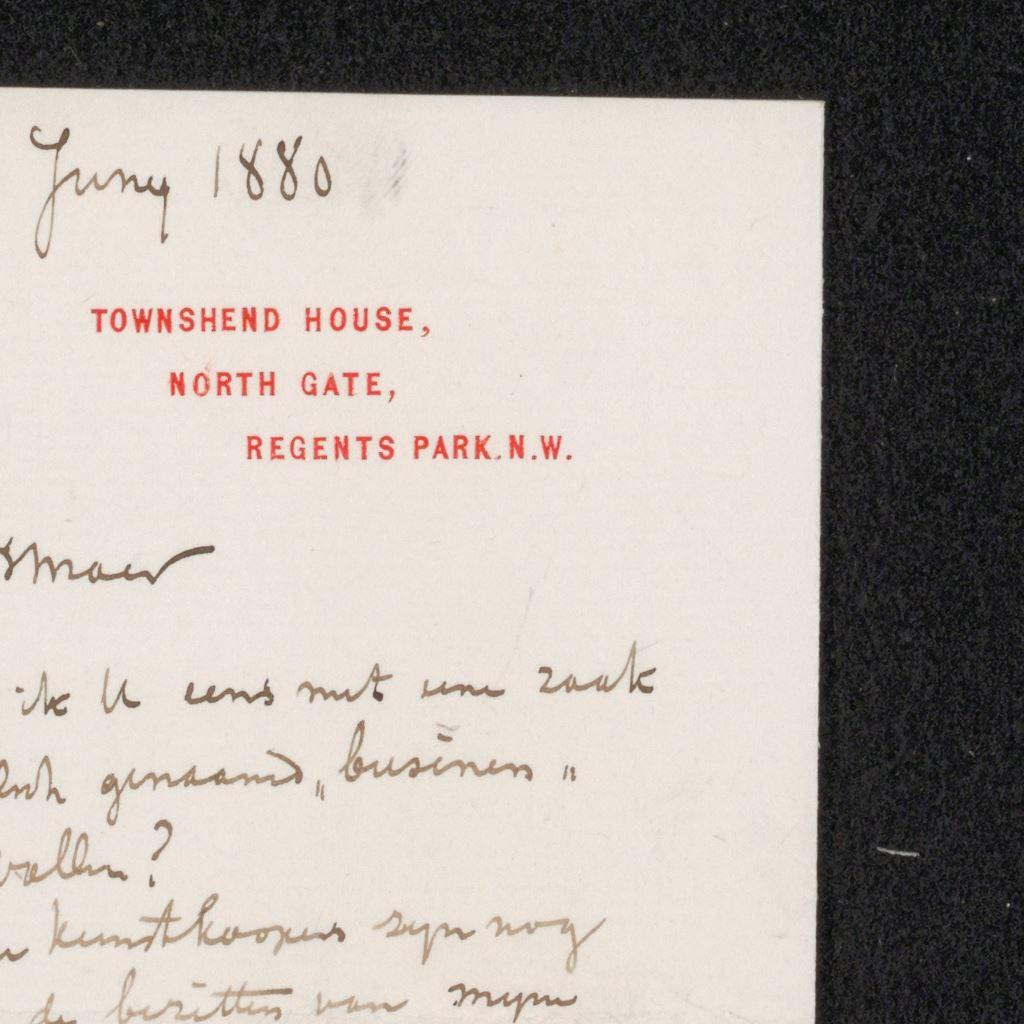 Juny 1880
TOWNSHEND HOUSE,
NORTH GATE,
REGENTS PARK.N.W.
ik U eens met eene zaak
genaamd „business„
vallen?
kunstkoopers zyn nog
de bezitters van myne